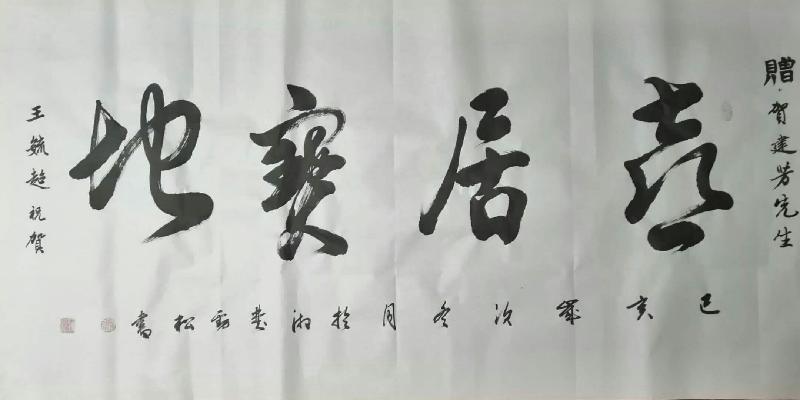 贈·賀建芳先生
喜居寶地
己亥歲次冬月於湘楚勁松書
王毓超祝賀